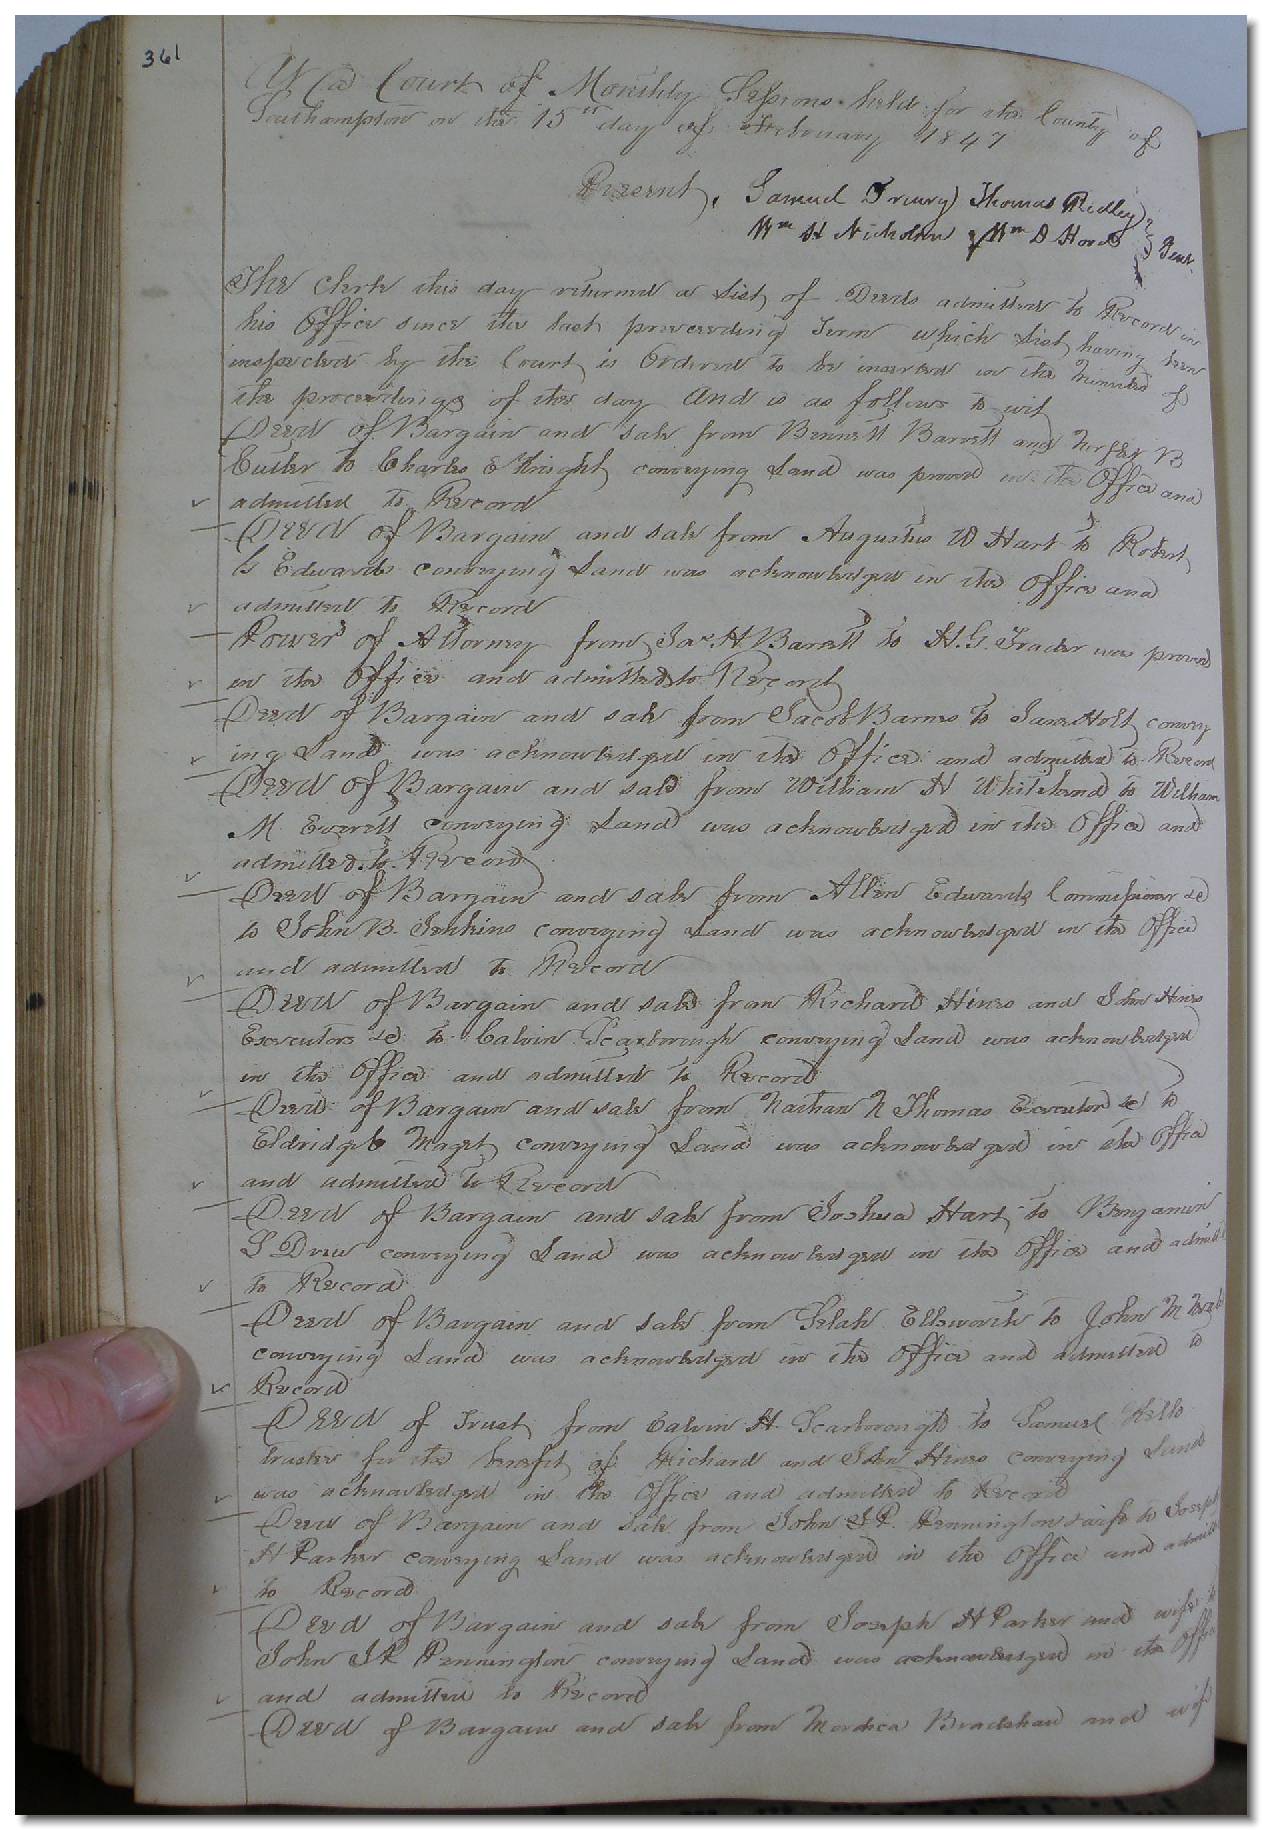 361
At a Court of Monthly Sessions held for the County of
Southampton on the 15th day of February 1847
Present, Samuel Drewry Thomas Ridley
Wm H Nicholson & Wm D Hood Gent.
The Clerk this day returned a List of Deeds admitted to Record in
his Office since the last preceeding Term which List having been
inspected by the Court is Ordered to be inserted in the minutes of
the proceedings of the day And is as follows to wit
Deed of Bargain and sale from Bennett Barrett and B
to Charles E Knight conveying Land was proved in the Office and
admitted to Record
Deed of Bargain and sale from Augustus W Hart to Robert
G Edwards conveying Land was acknowledged in the Office and
admitted to Record
Power of Attorney from Jas. H. Barrett to H. G. Trader was proved
in the Office and admitted to Record
Deed of Bargain and sale from Jacob Barnes to Holt convey
ing Land was acknowledged in the Office and admitted to Record
Deed of Bargain and sale from William H Whitehead to William
M Everett conveying Land was acknowledged in the Office and
admitted to Record
Deed of Bargain and sale from Allen Edwards Commissioner &c
to John B. Jenkins conveying Land was acknowledged in the Office
and admitted to Record
Deed of Bargain and sale from Richard Hines and John Hines
Executors &c to Calvin Scarborough conveying Land was acknowledged
in the Office and admitted to Record
Deed of Bargain and sale from Nathan N Thomas Executor &c to
Eldridge Maget conveying Land was acknowledged in the Office
and admitted to Record
Deed of Bargain and sale from Joshua Hart to Benjamin
S Drew conveying Land was acknowledged in the Office and admitted
to Record
Deed of Bargain and sale from Selah Ellsworth to John M
conveying Land was acknowledged in the Office and admitted to
Record
Deed of Trust from Calvin H. Scarborough to Samuel Kello
trustee for the benefit of Richard and John Hines conveying Land
was acknowledged in the Office and admitted to Record
Deed of Bargain and sale from John S P. Pennington & wife to Joseph
H Parker conveying Land was acknowledged in the Office and admitted
to Record
Deed of Bargain and sale from Joseph H Parker and wife to
John S P. Pennington conveying Land was acknowledged in the Office
and admitted to Record
Deed of Bargain and sale from Mordica Bradshaw and wife